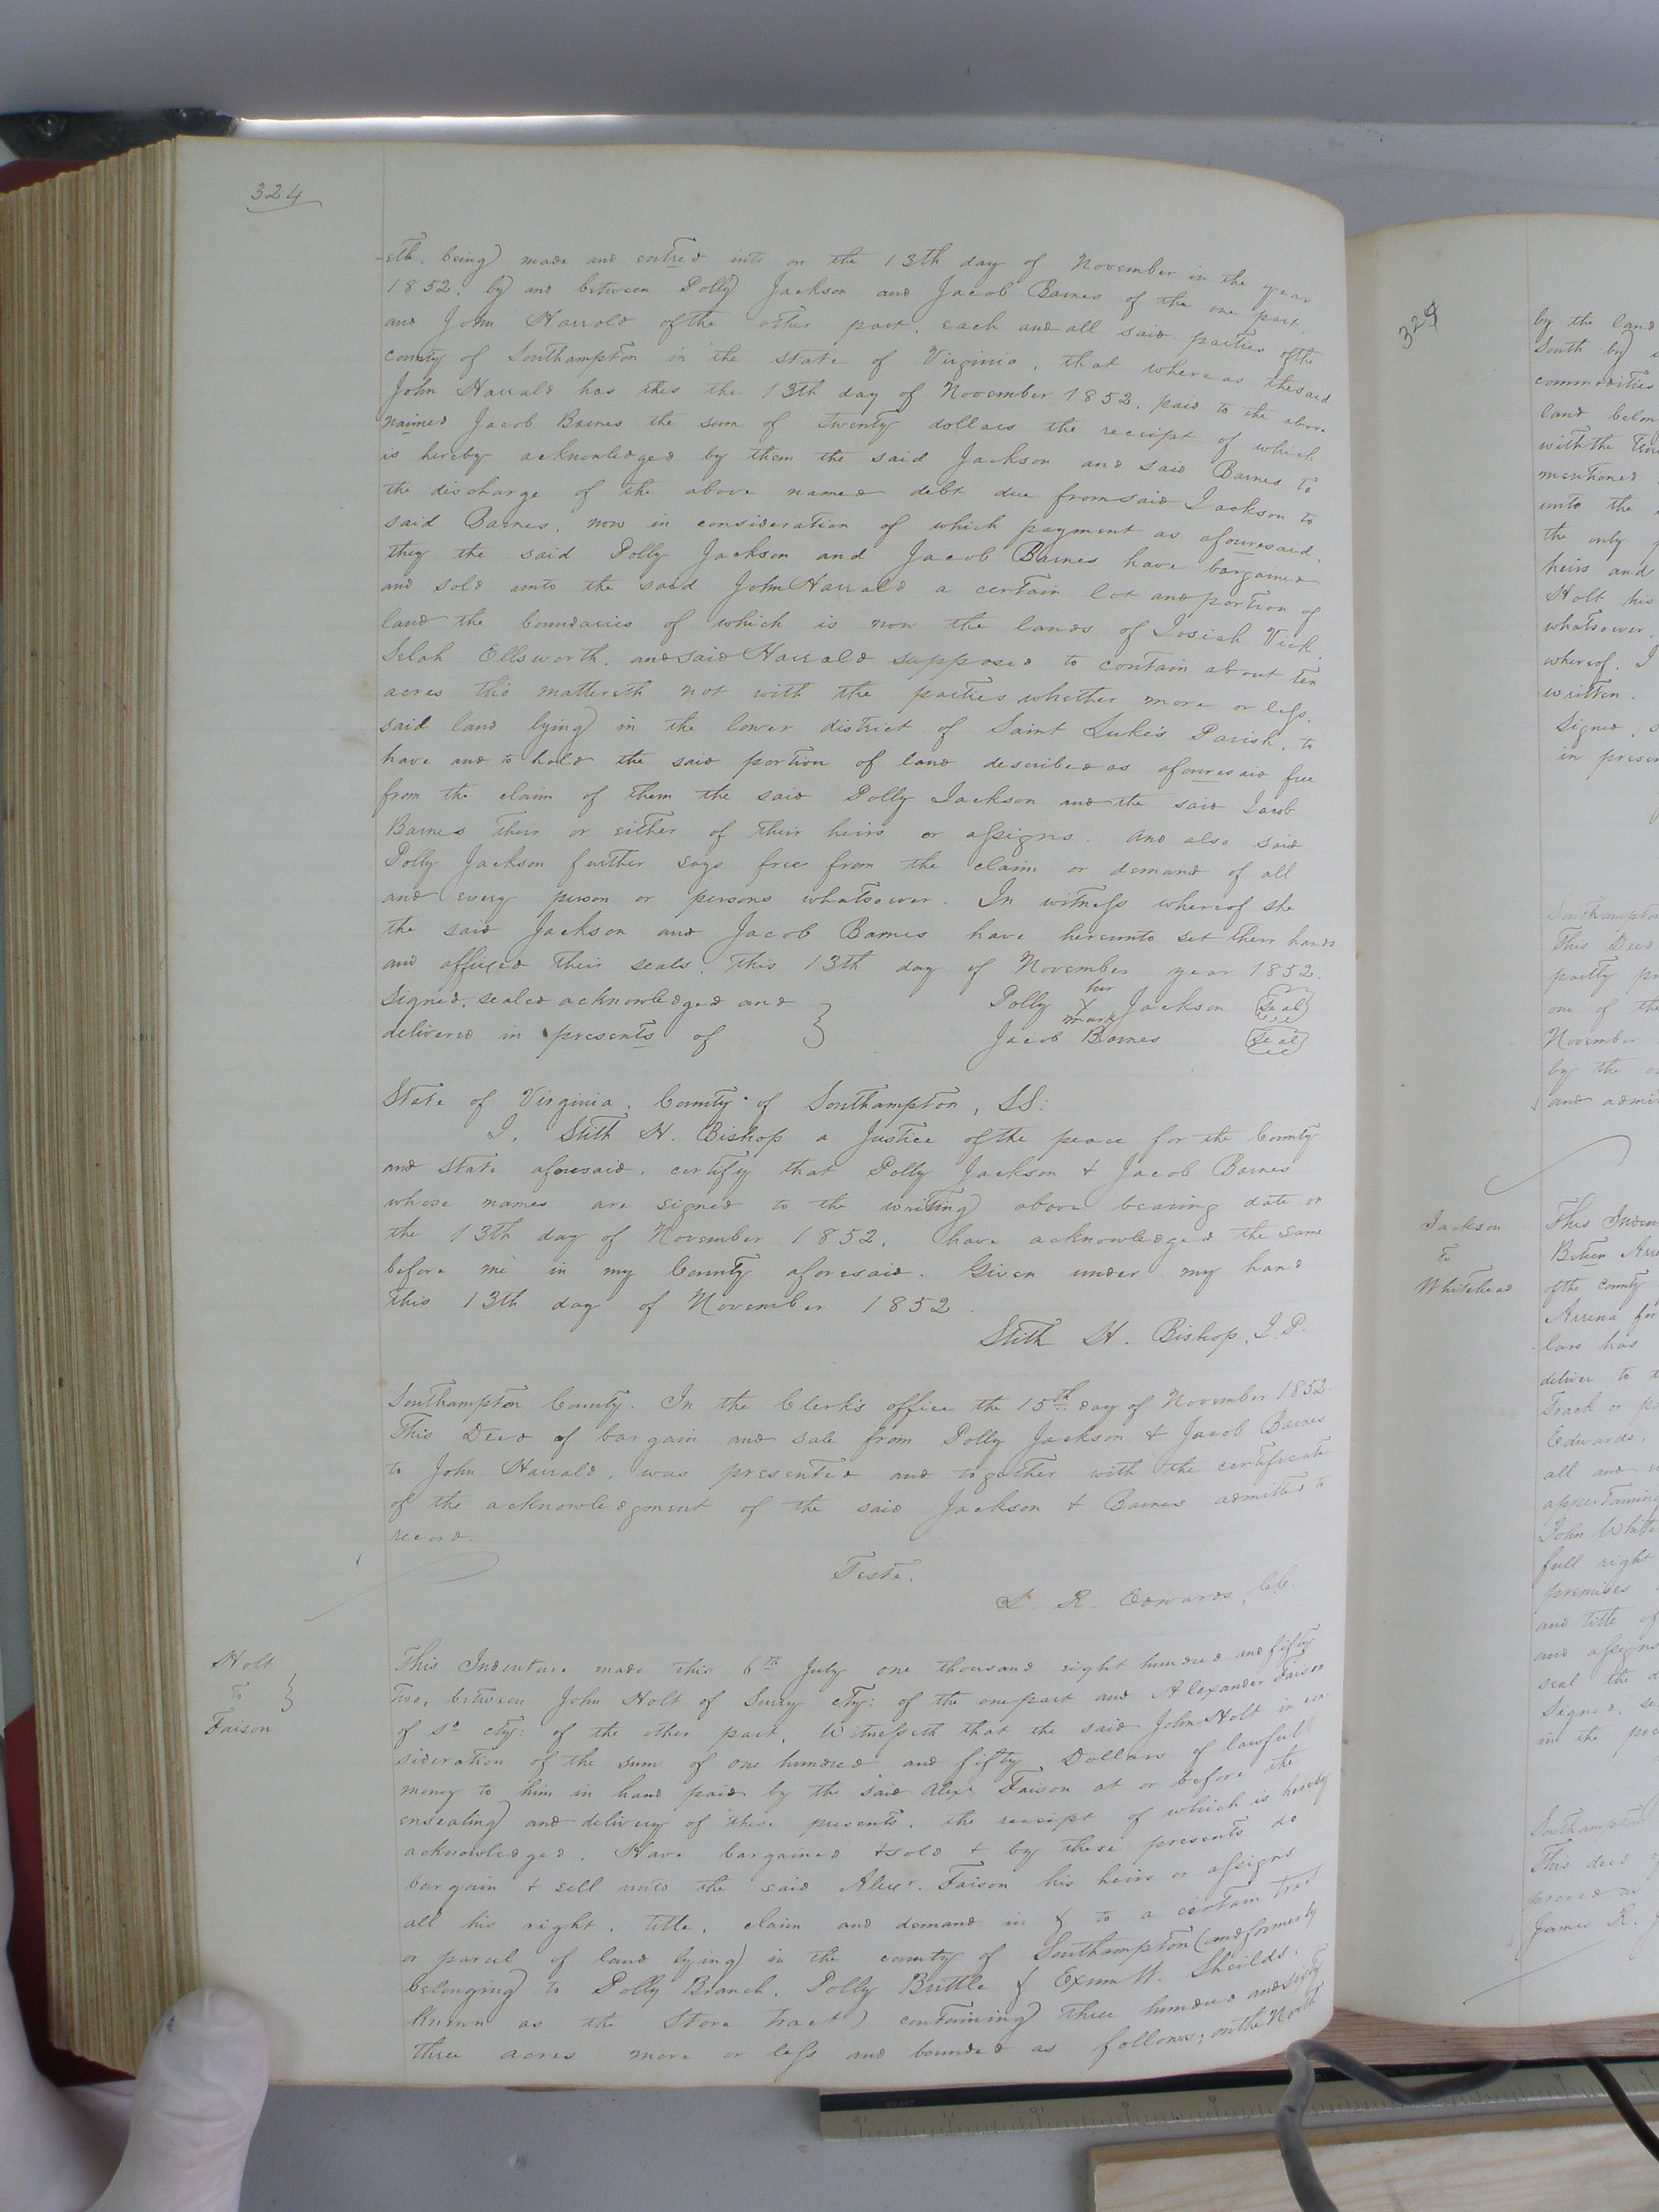 324
-eth. being made and entred into on the 13th day of November in the year
1852. by and between Polly Jackson and Jacob Barnes of the one part,
and John Harrold of the other part, each and all said parties of the
county of Southampton in the state of Virginia, that where as the said
John Harrald has this the 13th day of November 1852, paid to the above
naimed Jacob Barnes the sum of twenty dollars the receipt of which
is hereby acknowledged by them the said Jackson and said Barnes to
the discharge of the above named debt due from said Jackson to
said Barnes, now in consideration of which payment as afouresaid,
they the said Polly Jackson and Jacob Barnes have bargained
and sold unto the said John Harrald a certain lot and portion of
land the boundaries of which is now the lands of Josiah Vick,
Selah Ellsworth, and said Harrald supposed to contain about ten
acres tho mattereth not with the parties whether more or less,
said land lying in the lower district of Saint Luke's Parish, to
have and to hold the said portion of land described as afouresaid free
from the claim of them the said Polly Jackson and the said Jacob
Barnes their or either of their heirs or assigns. and also said
Polly Jackson further says free from the claim or demand of all
and every person or persons whatsoever. In witness whereof she
the said Jackson and Jacob Barnes have hereunto set their hands
and affixed their seals, this 13th day of November year 1852.
Signed, sealed acknowledged and } Polly her X mark Jackson (Seal)
delivered in presents of Jacob Barnes (Seal)
State of Virginia, County of Southampton, SS:
I, Stith H. Bishop a Justice of the peace for the County
and State aforesaid, certify that Polly Jackson & Jacob Barnes
whose names are signed to the writing above bearing date on
the 13th day of November 1852, have acknowledged the same
before me in my County aforesaid. Given under my hand
this 13th day of November 1852.
Stith H. Bishop, J.P.
Southampton County. In the Clerk's office the 15th day of November 1852.
This Deed of bargain and sale from Polly Jackson & Jacob Barnes
to John Harrald, was presented and together with the certificate
of the acknowledgment of the said Jackson & Barnes admitted to
record.
Teste.
L. R. Edwards, CC.
Holt
to }
Faison
This Indenture made this 6th July one thousand eight hundred and fifty
two, between John Holt of Surry cty: of the one part and Alexander Faison
of sd cty: of the other part, Witnesseth that the said John Holt in con
sideration of the sum of one hundred and fifty Dollars of lawful
money to him in hand paid by the said Alexr Faison at or before the
ensealing and delivery of these presents, the receipt of which is hereby
acknowledged, Have bargained & sold & by these presents do
bargain & sell unto the said Alexr. Faison his heirs or assigns
all his right, title, claim and demand in & to a certain tract
or parcel of land lying in the county of Southampton (and formerly
belonging to Polly Branch, Polly Buttle & Exum W. Sheilds,
known as the Store tract) containing three hundred and sixty
three acres more or less and bounded as follows; on the North
by the land
South by
commodities
land belon
with the
mentioned
unto the
the only
heirs and
Holt his
whatsoever.
whereof, I
written.
Signed,
in presen
Southampton
This Deed
partly pr
one of the
November
by the
and admit
Jackson
to
Whitehead
This Inden
of the county
Arrena for
lars has
deliver to
Edwards,
all and
appertaining
John White
full right
premises
and title of
and assigns
seal the
Signed, se
in the pre
Southampton
This deed
proved as
James R.